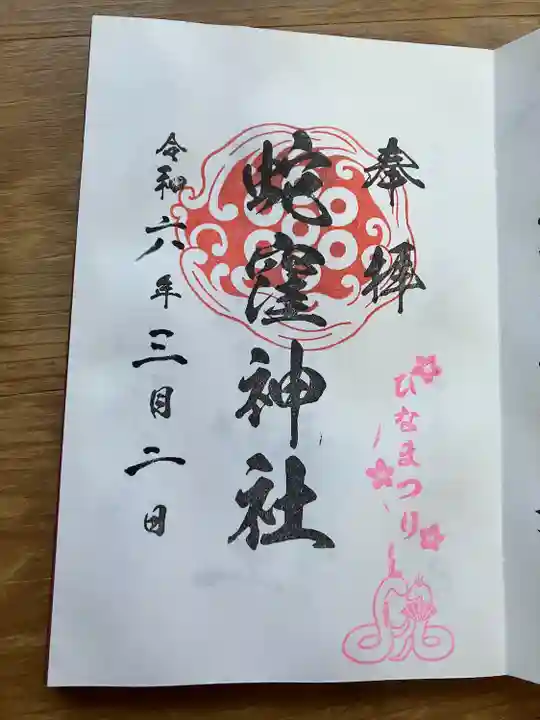 奉拝
ひなまつり
蛇窪神社
令和六年三月二日